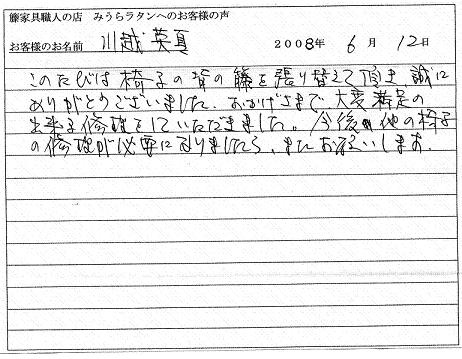 籐家具職人の店　みうらラタンへのお客様の声
お客様のお名前　川越英真　2008年　6月　12日
このたびは椅子の背の籐を張り替えて頂き誠に
ありがとうございました。おかげさまで大変満足の
出来る修理をしていただきました。今後、他の椅子
の修理が必要になりましたら、またお願いします。